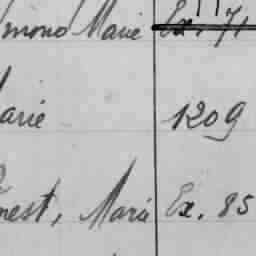 mond Marie Ex. 71
arie 1209
nest, Marie Ex. 85